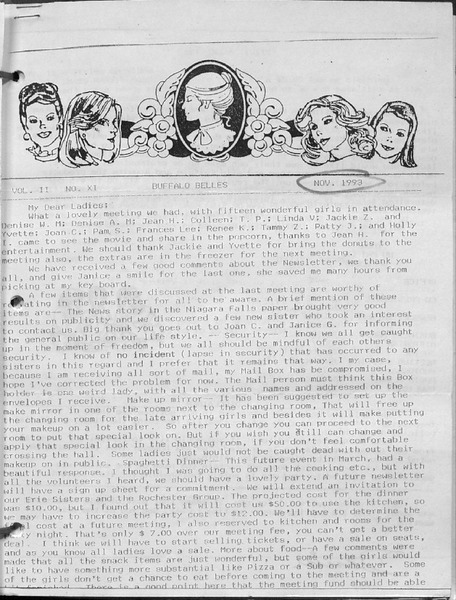 VOL. II NO. XI BUFFALO BELLES NOV. 1993
My Dear Ladies:
What a lovely meeting we had, with fifteen wonderful girls in attendance.
Denise W. M; Denise A. M; Jean H.; Colleen; T. P.; Linda V; Jackie Z. and
Yvette; Joan C.; Pam S.; Frances Lee; Renee K.; Tammy Z.; Patty J.; and Holly
F. came to see the movie and share in the popcorn, thanks to Jean H. for the
entertainment. We should thank Jackie and Yvette for bring the donuts to the
meeting also, the extras are in the freezer for the next meeting.
We have received a few good comments about the Newsletter, we thank you
all, and give Janice a smile for the last one, she saved me many hours from
picking at my key board.
A few items that were discussed at the last meeting are worthy of
in the newsletter for all to be aware. A brief mention of these
items are-- The News story in the Niagara Falls paper brought very good
results on publicity and we discovered a few new sister who took an interest
to contact us. Big thank you goes out to Joan C. and Janice G. for informing
the general public on our life style. -- Security-- I know we all get caught
up in the moment of freedom, but we all should be mindful of each others
security. I know of no incident (lapse in security) that has occurred to any
sisters in this regard and I prefer that it remains that way. I my case,
because I am receiving all sort of mail, my Mail Box has be compromised, I
hope I've corrected the problem for now. The Mail person must think this Box
holder is one weird lady, with all the various names and addressed on the
envelopes I receive. -- Make up mirror-- It has been suggested to set up the
make mirror in one of the rooms next to the changing room, That will free up
the changing room for the late arriving girls and besides it will make putting
your makeup on a lot easier. So after you change you can proceed to the next
room to put that special look on. But if you wish you still can change and
apply that special look in the changing room, if you don't feel comfortable
crossing the hall. Some ladies just would not be caught dead with out their
makeup on in public. . Spaghetti Dinner-- This future event in March, had a
beautiful response. I thought I was going to do all the cooking etc., but with
all the volunteers I heard, we should have a lovely party. A future newsletter
will have a sign up sheet for a commitment. We will extend an invitation to
our Erie Sisters and the Rochester Group. The projected cost for the dinner
was $10.00, but I found out that it will cost us $50.00 to use the kitchen, so
we may have to increase the party cost to $12.00. We'll have to determine the
cost at a future meeting, I also reserved to kitchen and rooms for the
night. That's only $ 7.00 over our meeting fee, you can't get a better
deal. I think we will have to start selling tickets, or have a sale on seats,
and as you know all ladies love a sale. More about food--A few comments were
made that all the snack items are just wonderful, but some of the girls would
like to have something more substantial like Pizza or a Sub or whatever. Some
of the girls don't get a chance to eat before coming to the meeting and are a
There is a good point here that the meeting fund should be able